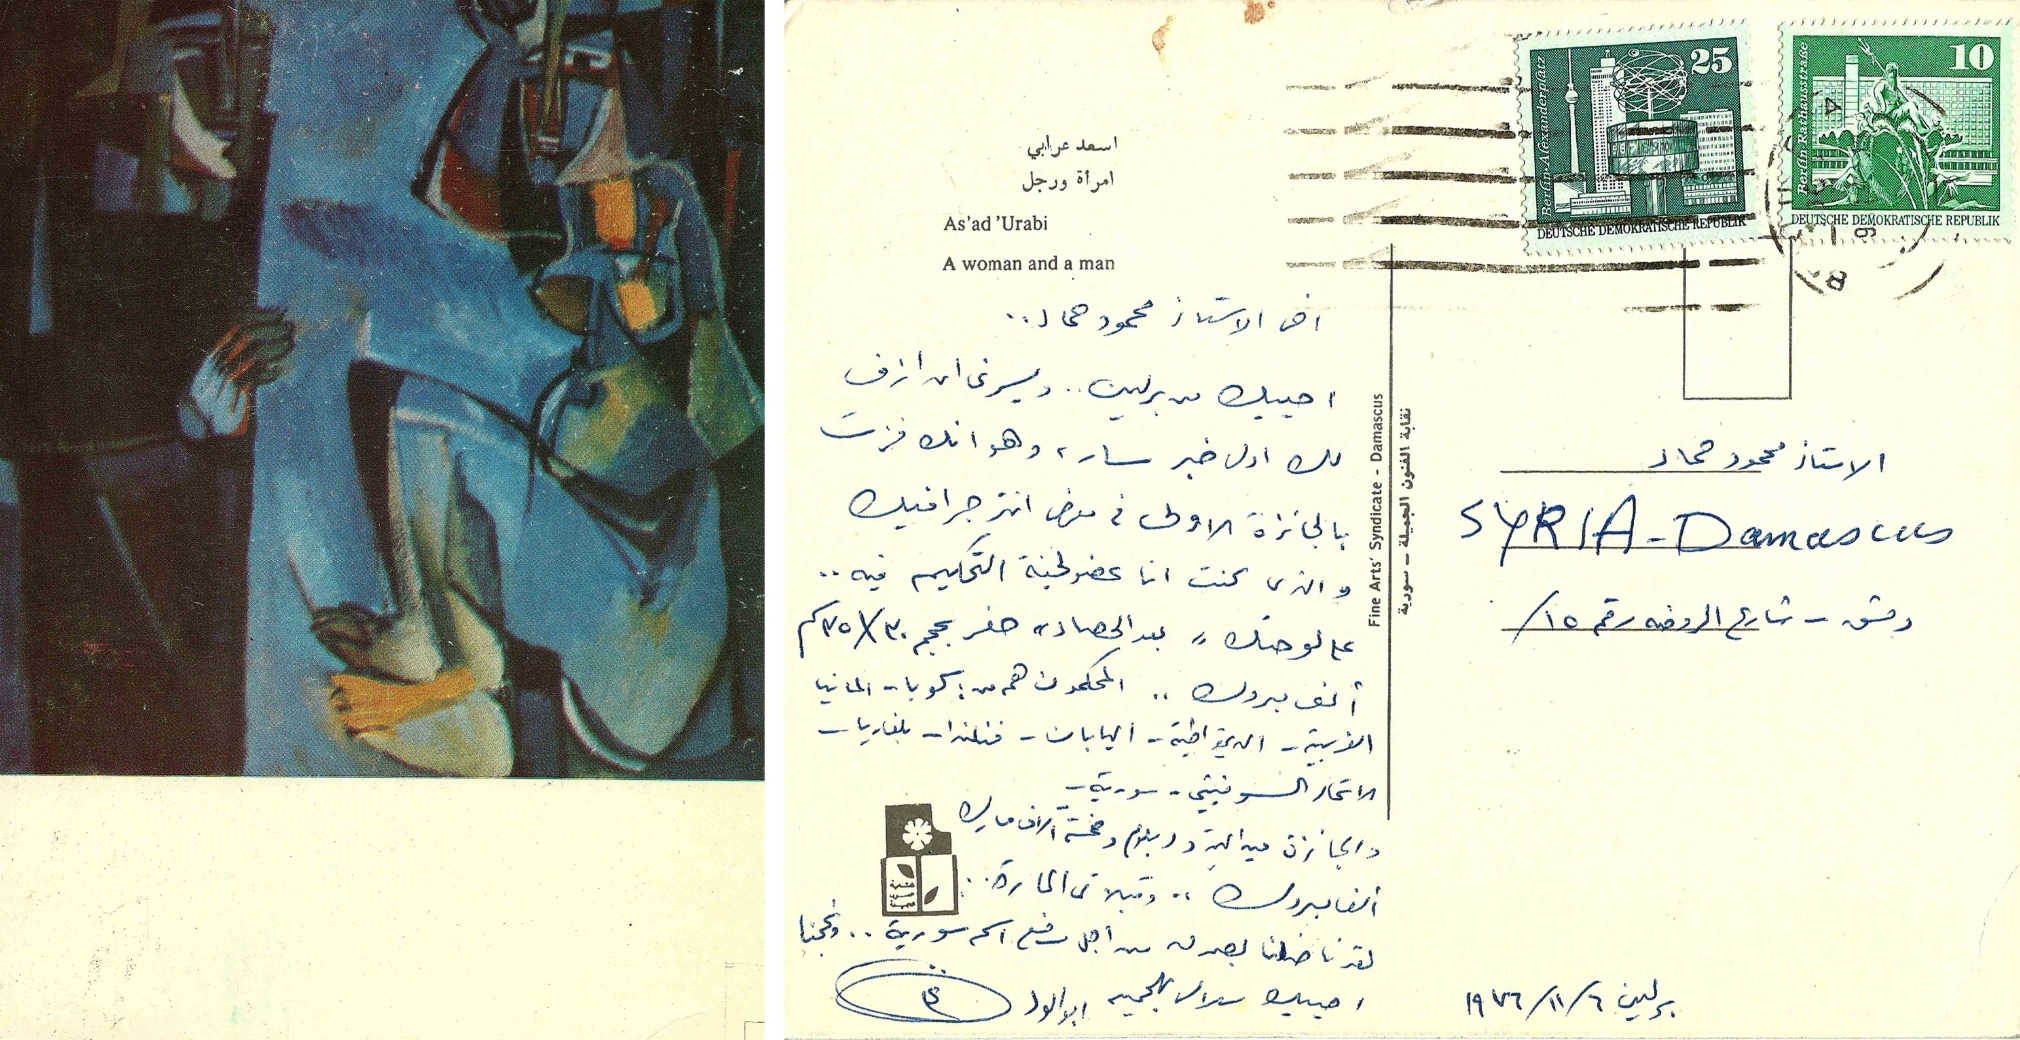 اسعد عرابي
امرأة ورجل
As'ad 'Urabi
A woman and a man
25
Berlin-Alexanderplatz
DEUTSCHE DEMOKRATISCHE REPUBLIK
10
Berlin, Rathausstraße
DEUTSCHE DEMOKRATISCHE REPUBLIK
اخي الاستاذ محمود حماد..
احييك من برلين.. ويسرني ان ازف
لك اول خبر سار، وهو انك فزت
بالجائزة الاولى في معرض انترجرافيك
والذي كنت انا عضو لجنة التحكيم فيه..
على لوحتك " بعد الحصاد " حفر بحجم ٣٠/٣٥ كم
ألف مبروك .. المحكمون هم من: كوبا - المانيا
الغربية - الديمقراطية - اليابان - فنلندا - بلغاريا -
الاتحاد السوفيتي - سورية -
والجائزة ميدالية ودبلوم وخمسة آلاف مارك
الف مبروك .. وقبلاتي الحارة..
لقد ناضلنا بصدق من أجل رفع اسم سورية .. ونجحنا
احييك سلامي للجميع ابو الوليد
Fine Arts' Syndicate - Damascus
نقابة الفنون الجميلة - سورية
الاستاذ محمود حماد
SYRIA - Damascus
دمشق - شارع الروضه رقم ١٥/
برلين ٦/١١/١٩٧٦